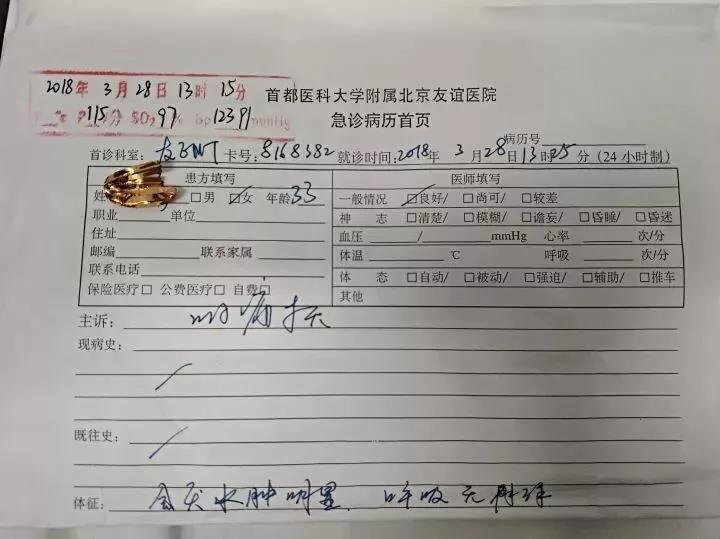 2018年 3月28日13时 15分
P 115次/分 SO₂ 97% Bp 123/91 mmHg
首都医科大学附属北京友谊医院
急诊病历首页
病历号
首诊科室: ENT 卡号: 8168382 就诊时间: 2018年 3月28日13时25分 (24小时制)
患方填写 医师填写
姓 □男 ☑女 年龄 33 一般情况 ☑良好/ □尚可/ □较差
职业 单位 神 志 □清楚/ □模糊/ □谵妄/ □昏睡/ □昏迷
住址 血压 / mmHg 心率 次/分
邮编 联系家属 体温 ℃ 呼吸 次/分
联系电话 体 态 □自动/ □被动/ □强迫/ □辅助/ □推车
保险医疗□ 公费医疗□ 自费□ 其他
主诉: 咽痛3天
现病史:
既往史:
体征: 会厌水肿明显. 呼吸无